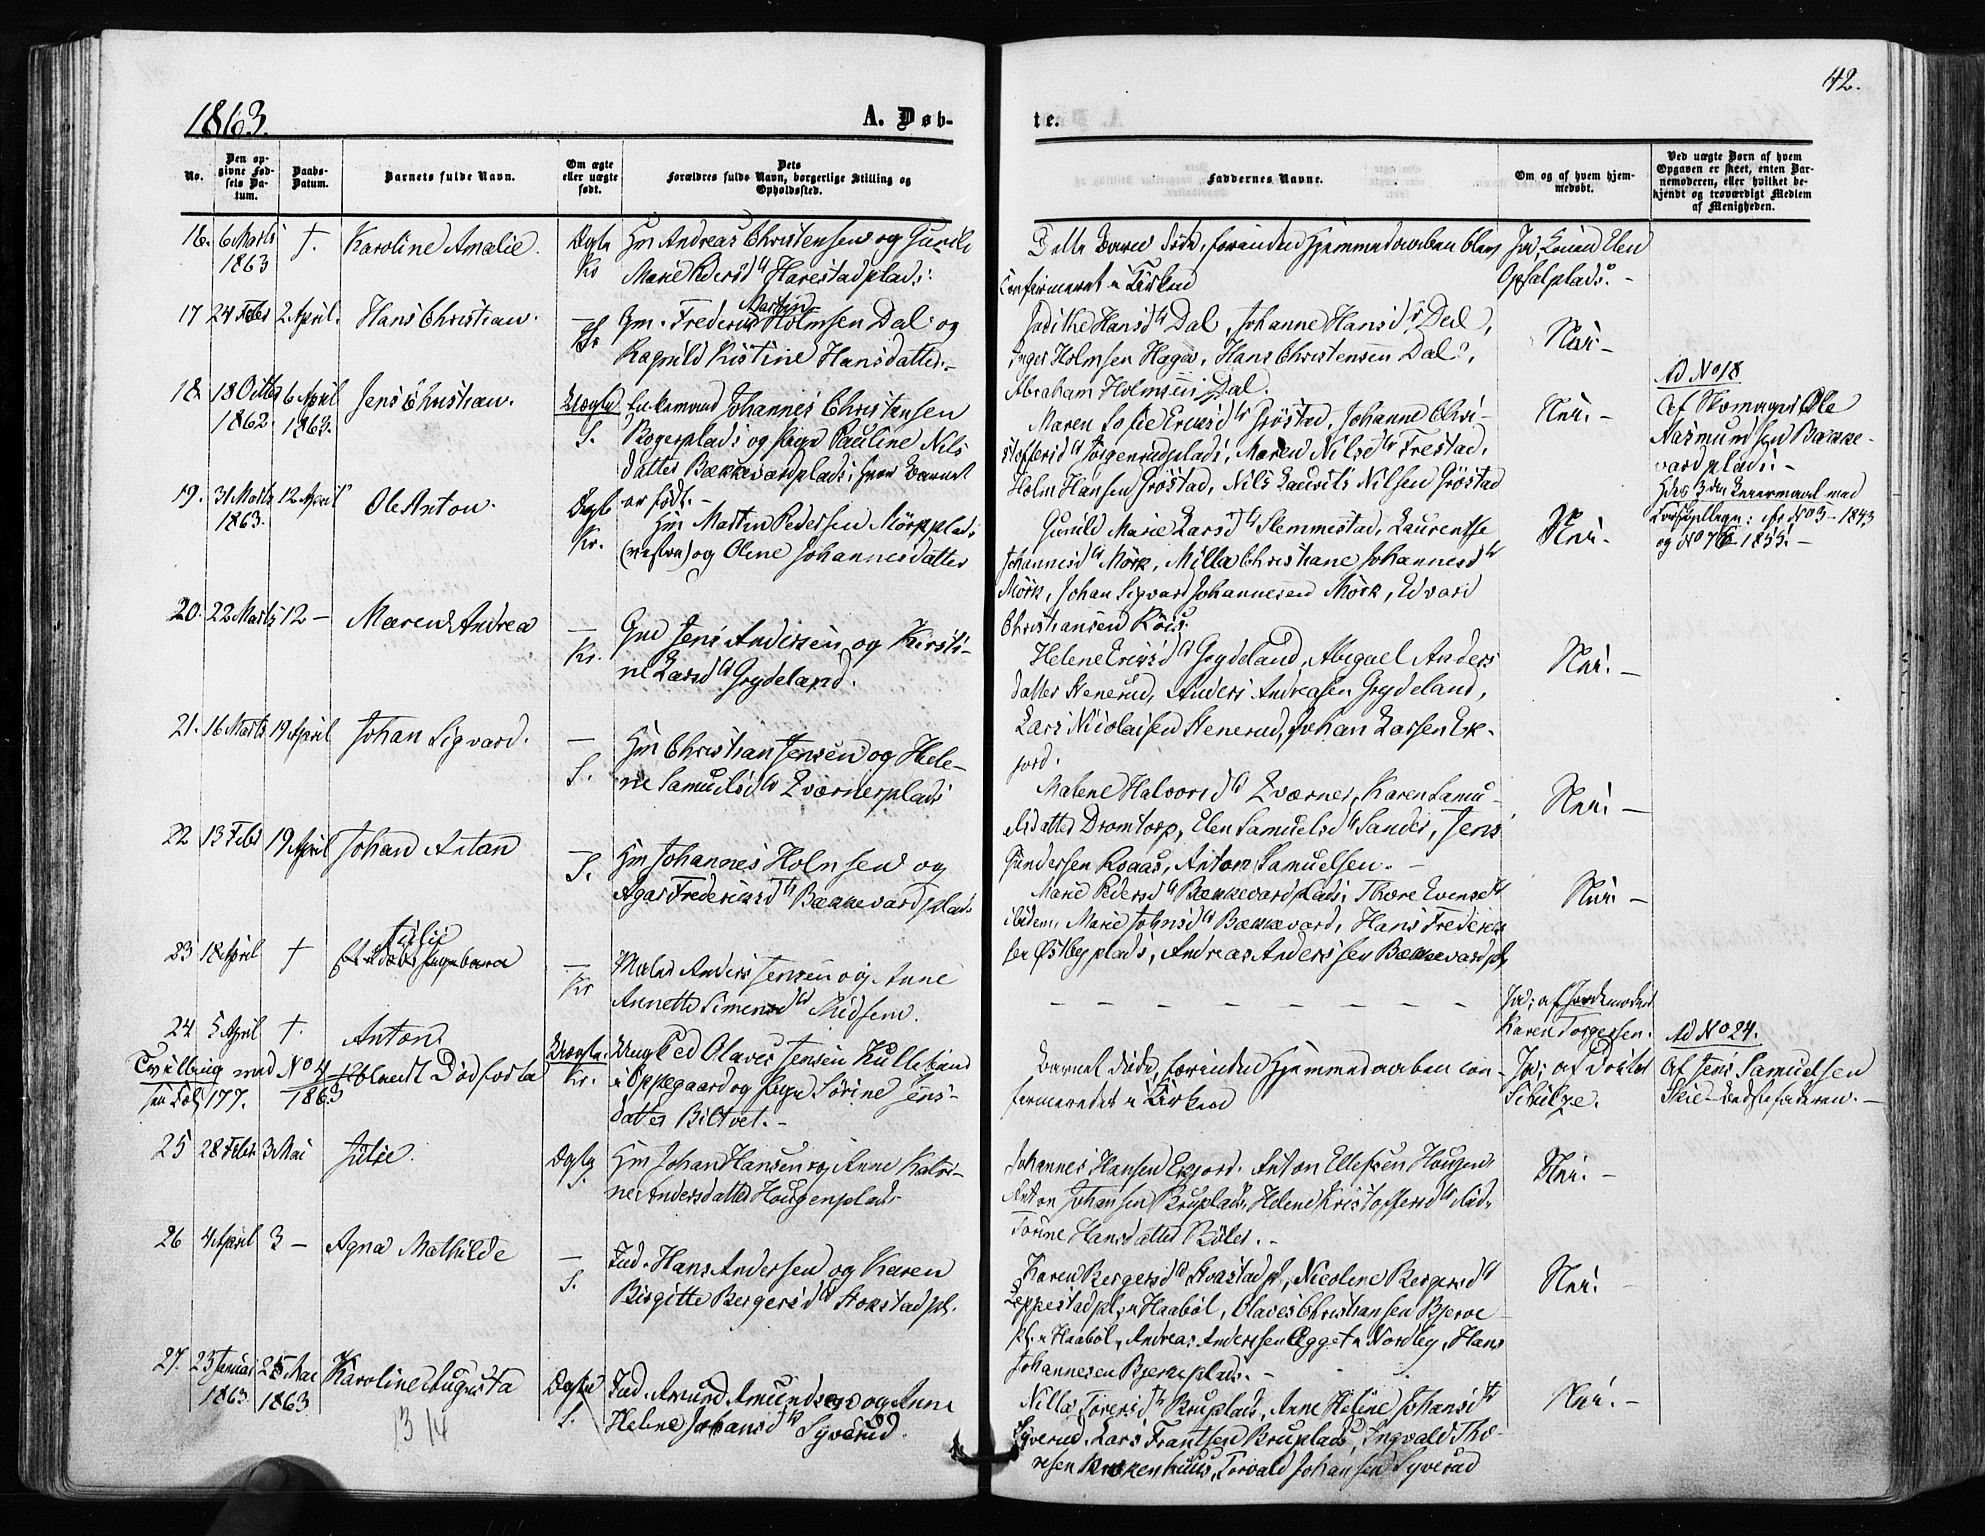 1863.
A. Døb-
te.
42.
No.
Den op-
givne Fød-
sels Da-
tum.
Daabs-
Datum.
Barnets fulde Navn.
Om ægte
eller uægte
født.
Dets
Forældres fulde Navn, borgerlige Stilling og
Opholdssted.
Faddernes Navne.
Om og af hvem hjem-
medøbt.
Ved uægte Børn af hvem
Opgaven er skeet, enten Bar-
nemoderen, eller hvilket be-
kjendt og troværdigt Medlem
af Menigheden.
6 Marts
1863
†.
Karoline Amalie.
Ægte
Kr
Hm Andreas Christensen og Gunild
Marie Pedersdtr Harestadplads:
Dette Barn døde, forinden Hjemmedaaben blev
Confirmeret i Kirken
Ja,
Opsalplads. –
17
24 Febr
2 April.
Hans Christian.
–
Gm. Frederik Martin Holmsen Dal og
Ragnild Kistine Hansdatter. –
Johanne Hansdtr Dal,
Inger Holmsen Haga, Hans Christensen Dal,
Abraham Holmsen Dal.
Nei –
18.
18 Octbr
1862.
6 April
1863.
Jens Christian.
Uægte
S.
Enkemand Johannes Christensen
Bøgerplads og Pige Pauline Nils
datter Bækkevardplads, hvor Barnet
er født. –
Maren Sofie Ericsdtr Grøstad, Johanne Chri-
stoffersdtr Jørgenrudplads, Maren Nilsdtr Frestad,
Holm Hansen Grøstad, Nils Laurits Nilsen Grøstad
Nei. –
Ad No 18
Af Skomager Ole
Rasmussen Bække-
vardplads. –
No 3 – 1843
1855. –
19.
31 Marts
1863.
12 April
Ole Anton.
Ægte
Kr.
Hm Martin Pedersen Mörkplads
og Oline Johannesdatter
Gunild Marie Larsdtr Slemmestad, Laurentse
Johannesdtr Mörk, Milla Christiane Johannesdtr
Mörk, Johan Sigvard Johannesen Mörk, Edvard
Christiansen Röis.
Nei.
20.
22 Marts
12 –
Maren Andrea
–
Kr.
Gm Jens Andersen og Kirsti-
ne Larsdtr Grydeland.
Helene Ericsdtr Grydeland, Abigael Anders
datter Stenerud, Anders Andreasen Grydeland,
Lars Nicolaisen Stenerud, Johan Larsen Ek-
jord.
Nei. –
21.
16 Marts
19 April
Johan Sigvard.
–
S.
Hm Christian Jensen og Hele-
ne Samuelsdtr Kværnerplads
Malene Halvorsdtr Kværner, Karen Samu-
elsdatter Dromtorp, Elen Samuelsdtr Sander, Jens
Gundersen Raaas, Anton Samuelsen. –
Nei. –
22
13 Febr
19 April
Johan Anton
–
S.
Hm Johannes Holmsen og
Agar Fredriksdtr Bækkevardplads
Marie Pedersdtr Bækkevardplads, Thore Evensdtr
ibidem, Marie Johnsdtr Bækkevard, Hans Fredrik
sen Østbyplads, Andreas Anderssen Bækkevardpl.
Nei. –
23
18 April
†
Julie
–
Kr
Anders Jensen og Anne
Annette Simensdtr Midsem.
– – – – – – – –
Ja; af Jordemoder
Karen Torgersen.
24
5 April
†.
Anton
Uægte.
Kr.
Ungk Ped Olaves Jensen Kullebund
i Oppegaard og Pige Sörine Jens-
datter Biltvet. –
Barnet døde, forinden Hjemmedaaben con-
firmeredes i Kirken
Ja; af Doktor
Schulze.
Ad No 24.
Af Jens Samuelsen
Skie –
Tvilling med No 4 Dødfødte
see Fol 177. 1863
25
28 Febr
3 Mai
Julie.
Ægte
S.
Hm Johan Hansen og Anne Katri-
ne Andersdatter Hougenplads
Johannes Hansen Ekjord. Anton Ellefsen Hougen,
Anton Johansen Bruplads, Helene Kristoffersdtr
Torine Hansdatter Böler. –
Nei. –
26
4 April
3 –
Agna Mathilde
–
S.
Ind. Hans Andersen og Karen
Birgitte Bergersdtr Stokstadpl.
Karen Bergersdtr Stokstadpl, Nicoline Bergersdtr
Leppestadpl, i Haabøl, Olaves Christiansen Bjerke
pl. i Haabøl, Andreas Anderssen Egget i Nordby, Hans
Johannesen Bjerkeplads. –
Nei. –
27.
23 Januar
1863
25 Mai
1863
Karoline Augusta
Ægte
S.
Ind. Amund Amundsen og Anne
Helene Johansdtr Syverud.
Nilla Toresdtr Bruplads, Anne Heline Johansdtr
Syverud, Lars Frantsen Bruplads, Ingvald Tho-
resen Krokenhuus, Torvald Johansen Syverud
Nei. –
13 14